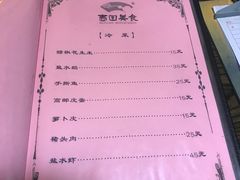 美食
【冷菜】
糖醋花生米 15元
盐水鹅 35元
手撕鱼 25元
高邮皮蛋 15元
萝卜皮 15元
猪头肉 25元
盐水虾 45元